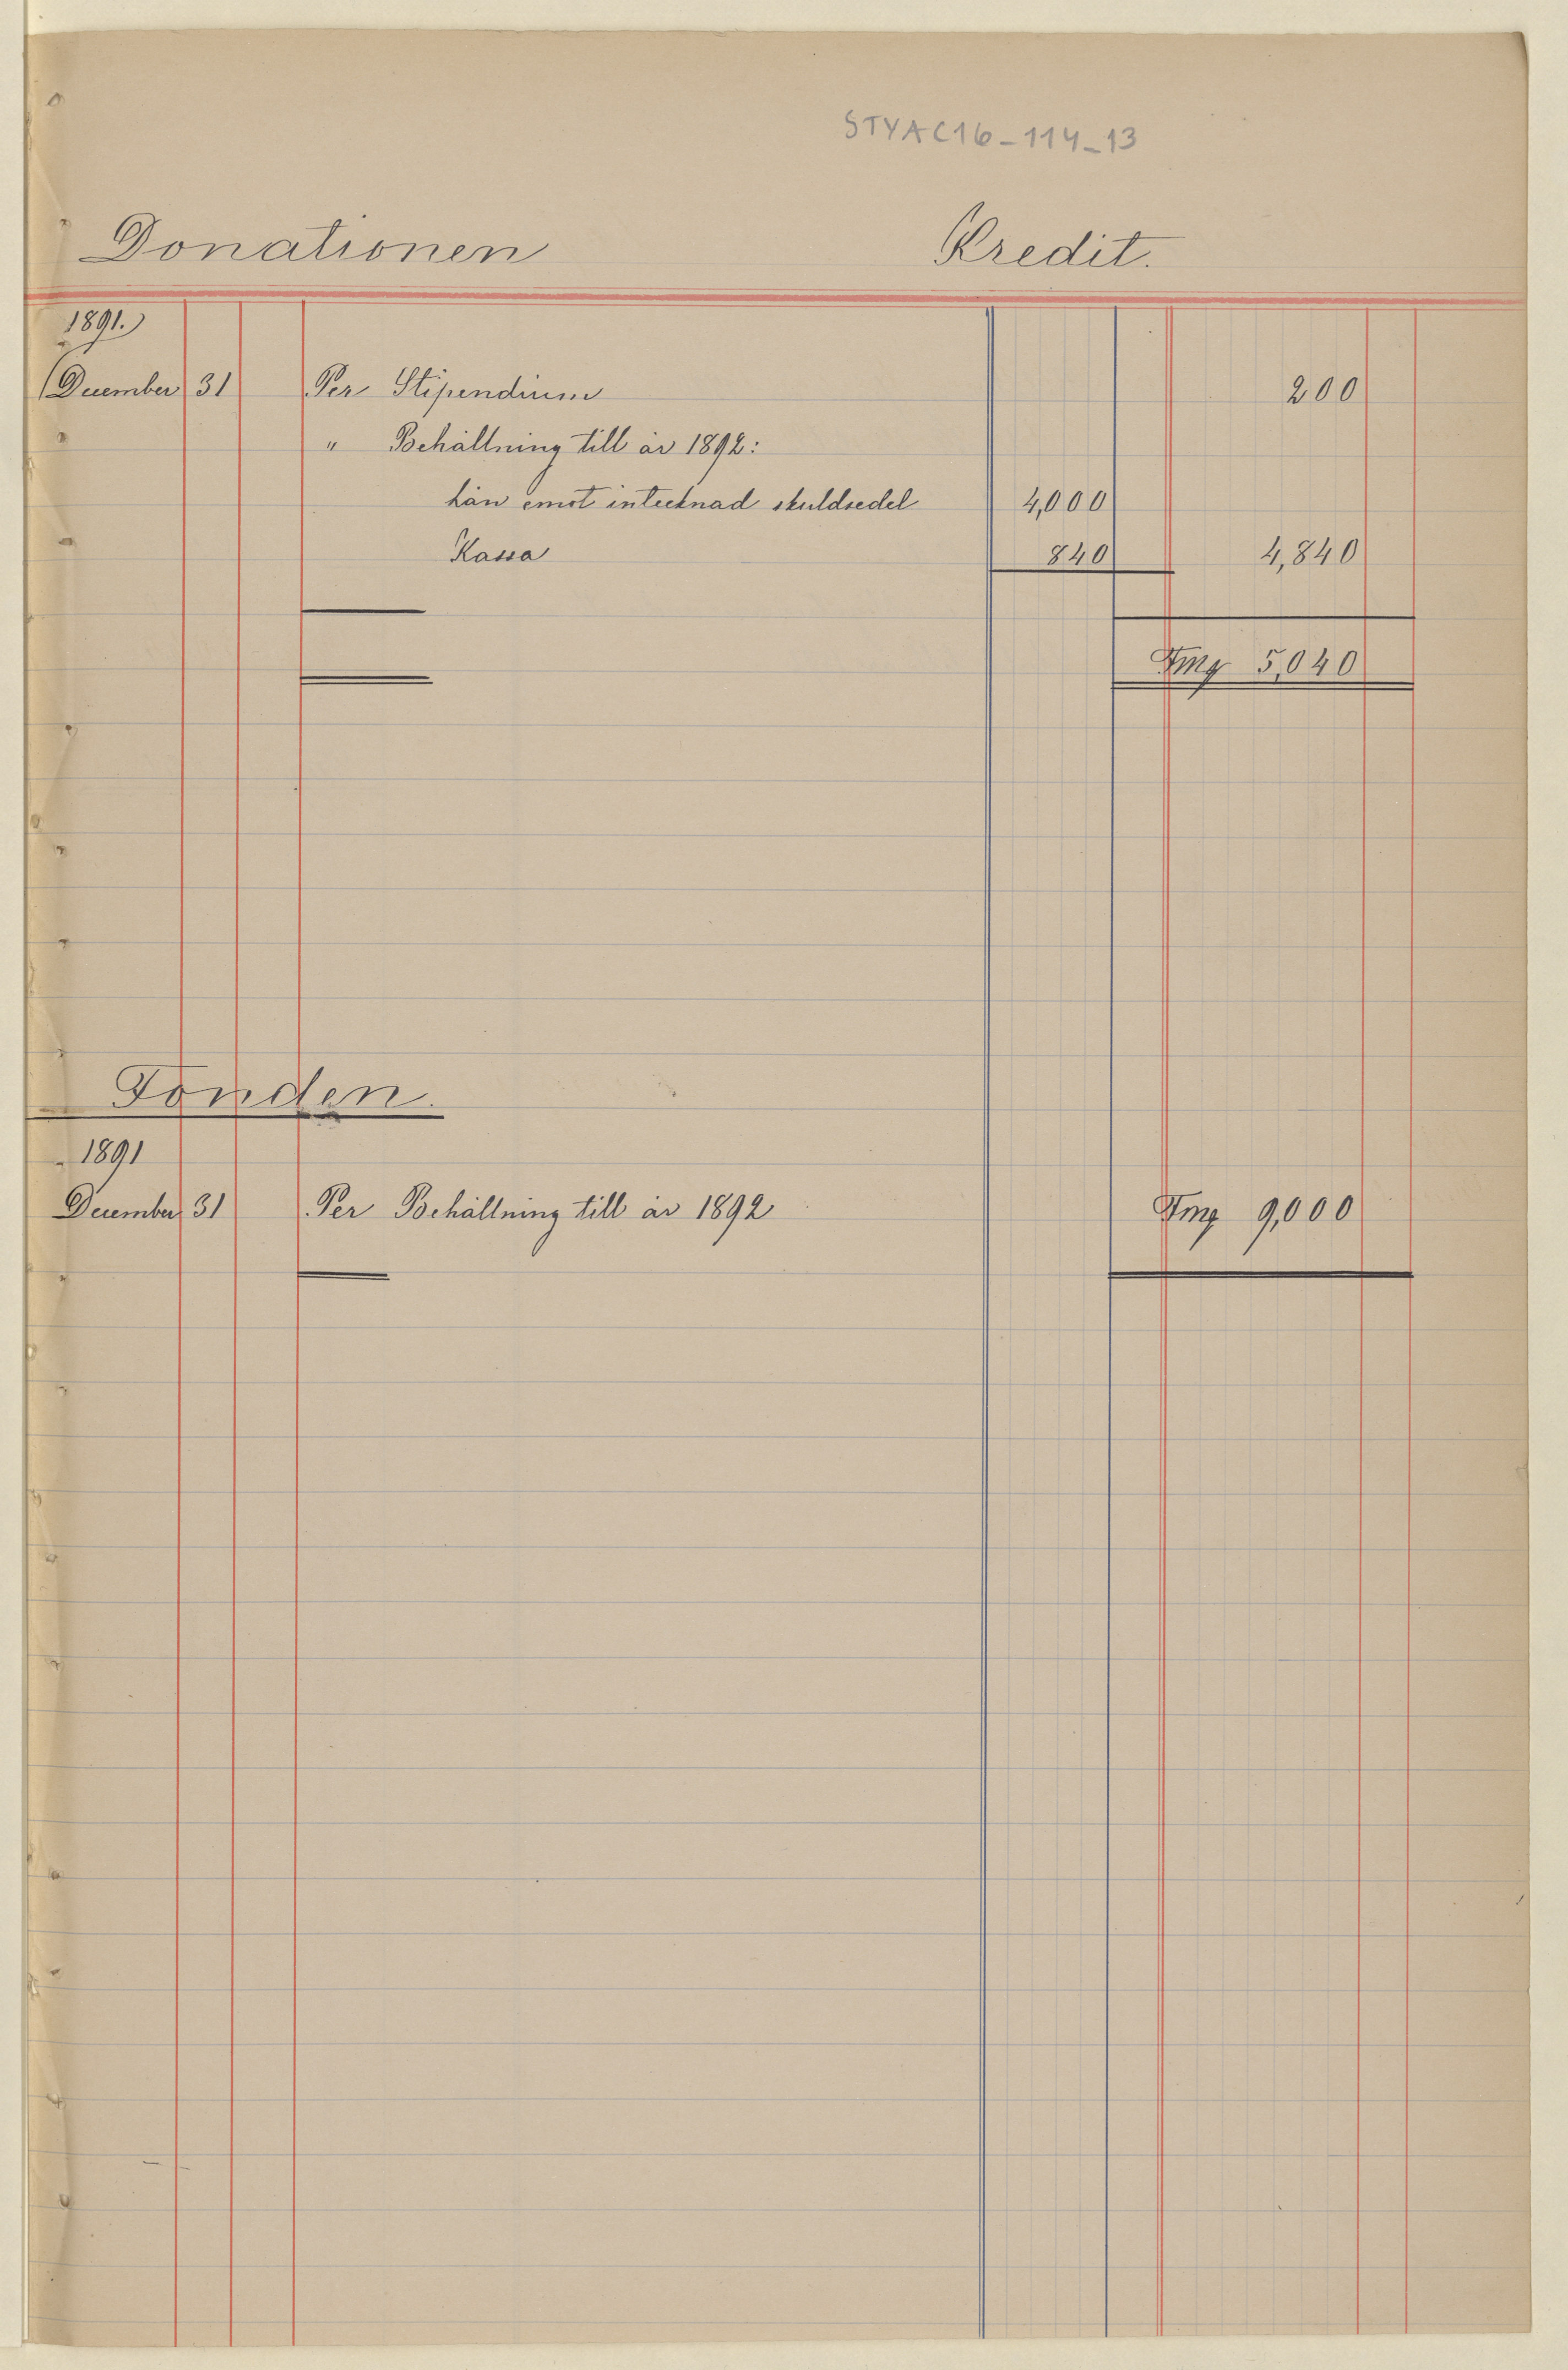 STYAC16-114-13
Donationen Kredit.
1891.
December 31 Per Stipendium 200
" Behållning till år 1892:
Lån emot intecknad skuldsedel 4,000
Kassa 840 4,840
Fmg 5,040
Fonden.
1891
December 31 Per Behållning till år 1892 Fmg 9,000